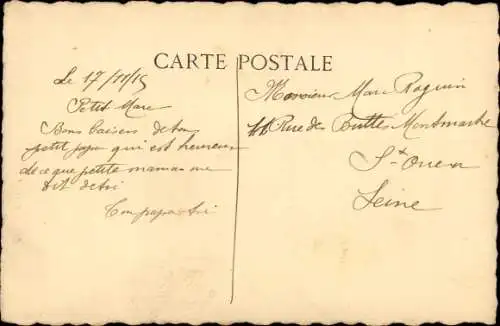 CARTE POSTALE
Le 17/11/15
Petit Marc
Bons baisers de ton
petit papa qui est heureux
de ce que petite maman me
dit de toi
Ton papa
Monsieur Marc Raguin
Rue des Buttes Montmartre
St Ouen
Seine